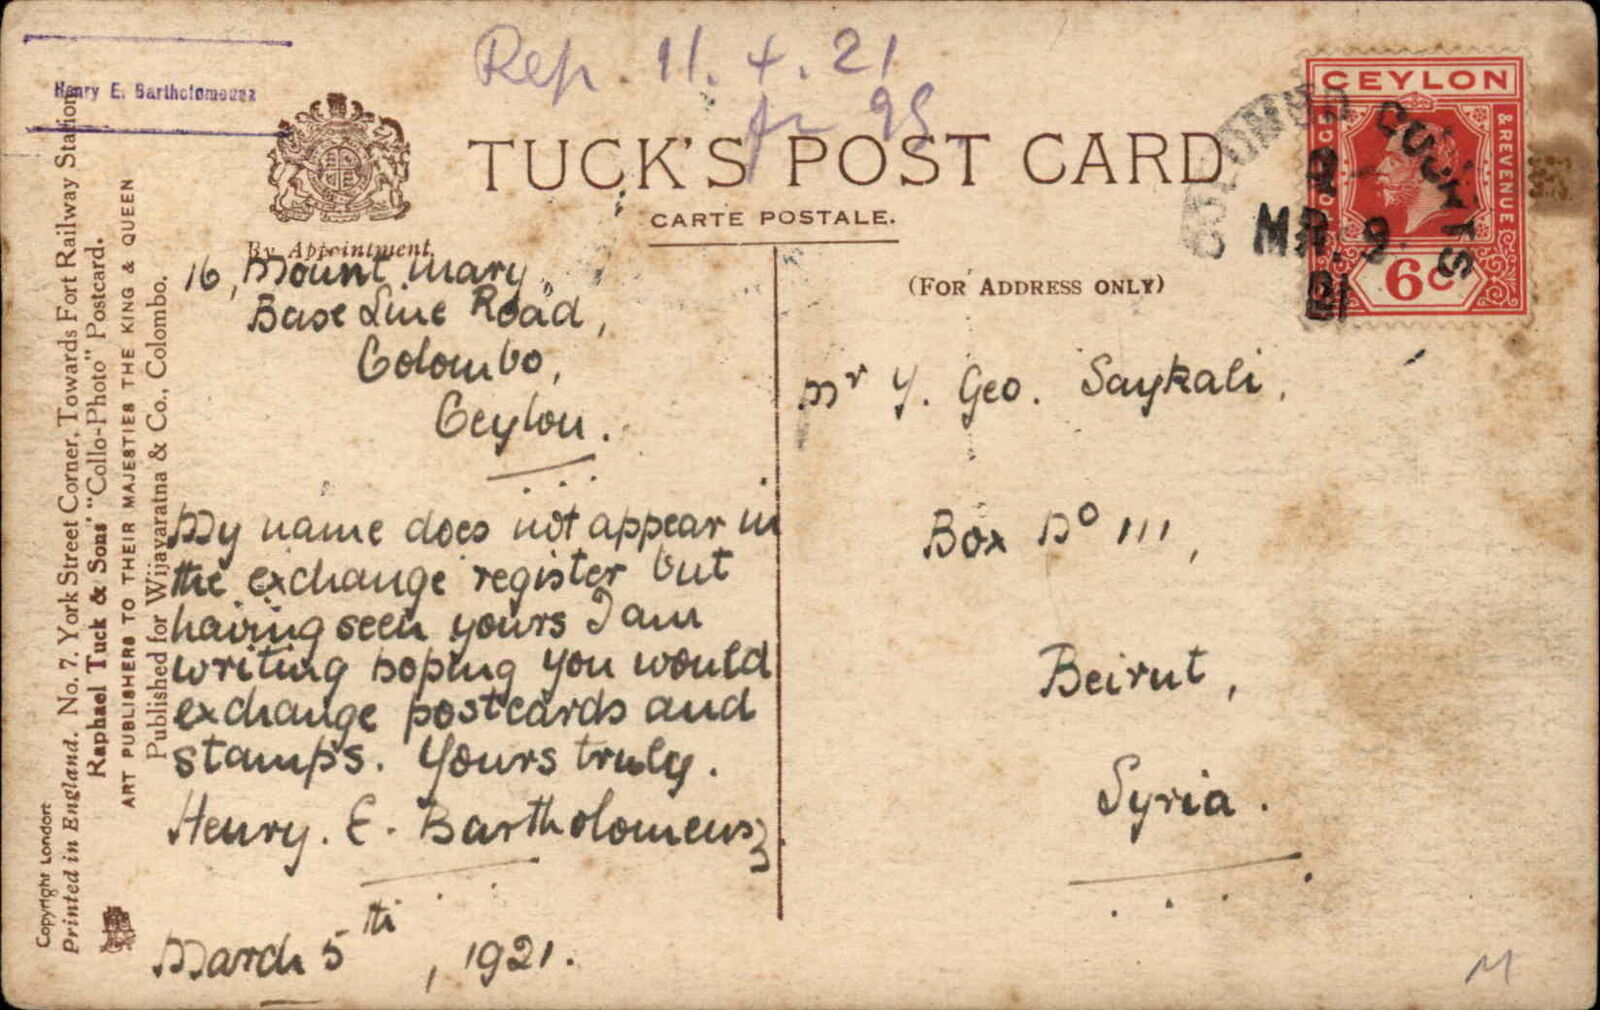 Rep. 11.4.21
Henry E. Bartholomeusz
TUCK'S POST CARD
CARTE POSTALE.
By Appointment.
(FOR ADDRESS ONLY)
CEYLON
POSTAGE
& REVENUE
6c
MR. 9
21
16, Mount Mary,
Base Line Road,
Colombo,
Ceylon.
My name does not appear in
the exchange register but
having seen yours I am
writing hoping you would
exchange postcards and
stamps. Yours truly.
Henry. E. Bartholomeusz
March 5th, 1921.
Mr Y. Geo. Saykali,
Box No 111,
Beirut,
Syria.
Copyright London
Printed in England. No. 7. York Street Corner, Towards Fort Railway Station
Raphael Tuck & Sons' "Collo-Photo" Postcard.
ART PUBLISHERS TO THEIR MAJESTIES THE KING & QUEEN
Published for Wijayaratna & Co., Colombo.
M